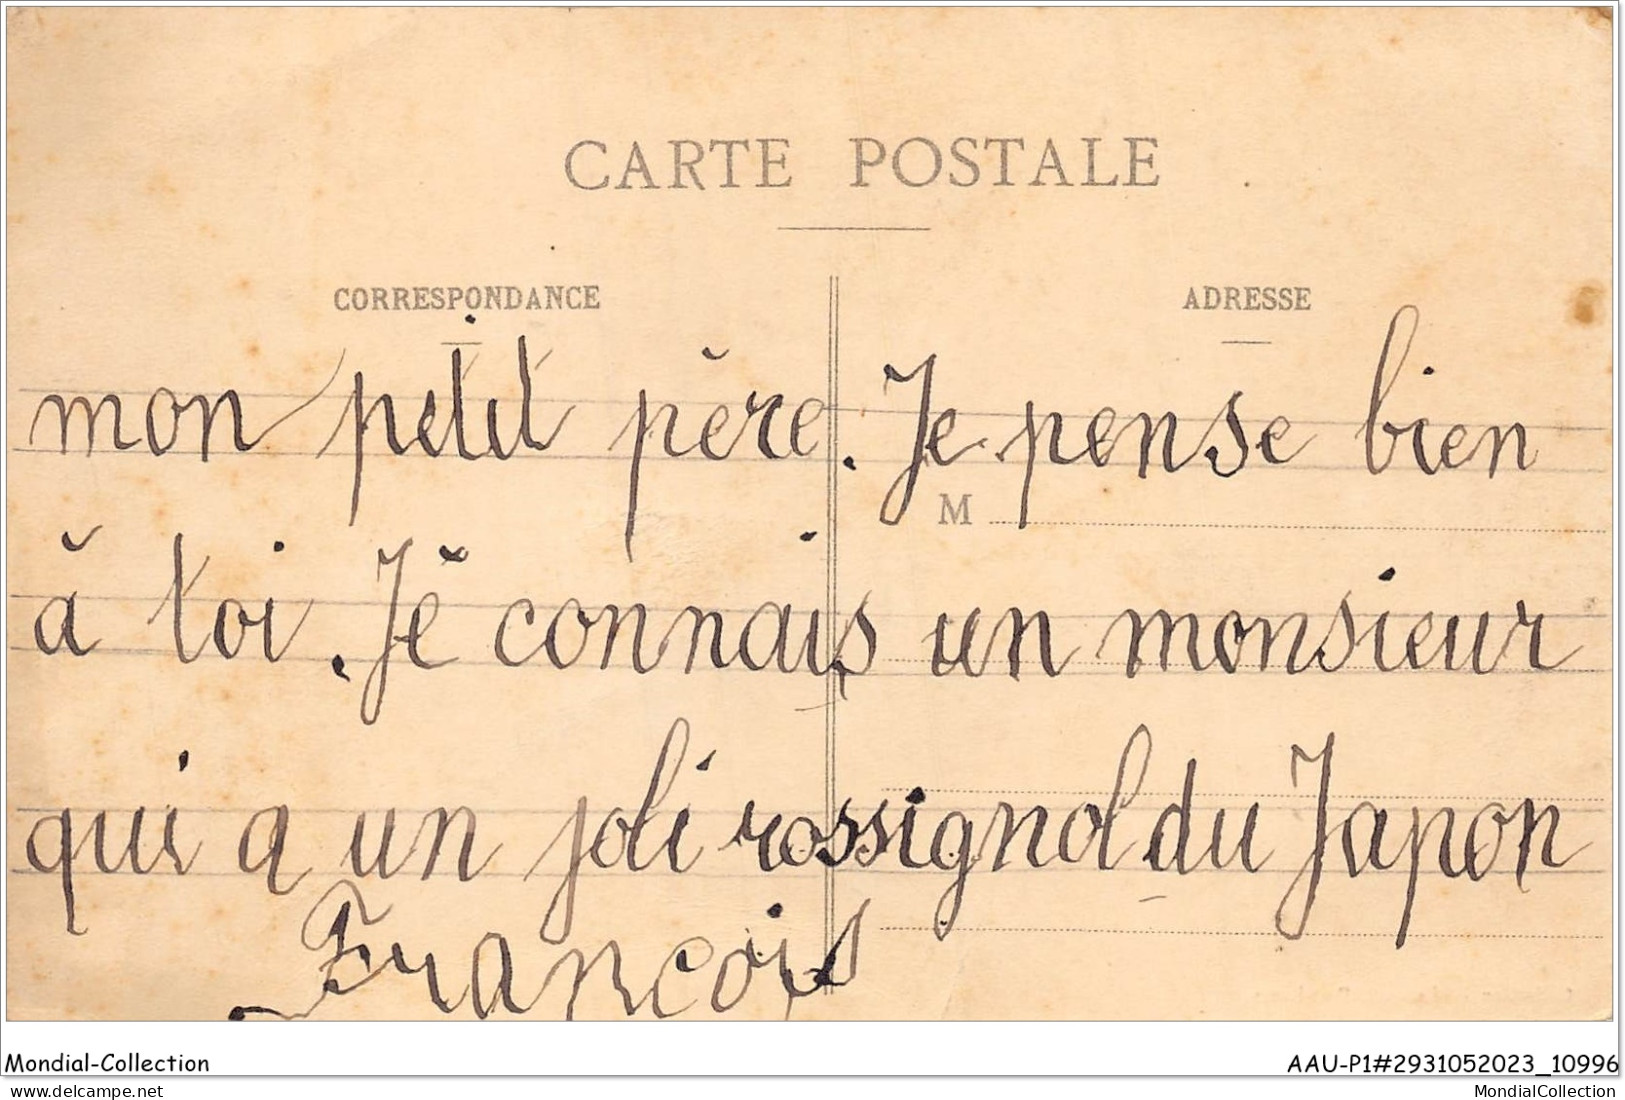 CARTE POSTALE
CORRESPONDANCE
ADRESSE
mon petit père. Je pense bien
M
à toi. Je connais un monsieur
qui a un joli rossignol du Japon
François
Mondial-Collection
AAU-P1#2931052023_10996
delcampe.net
MondialCollection